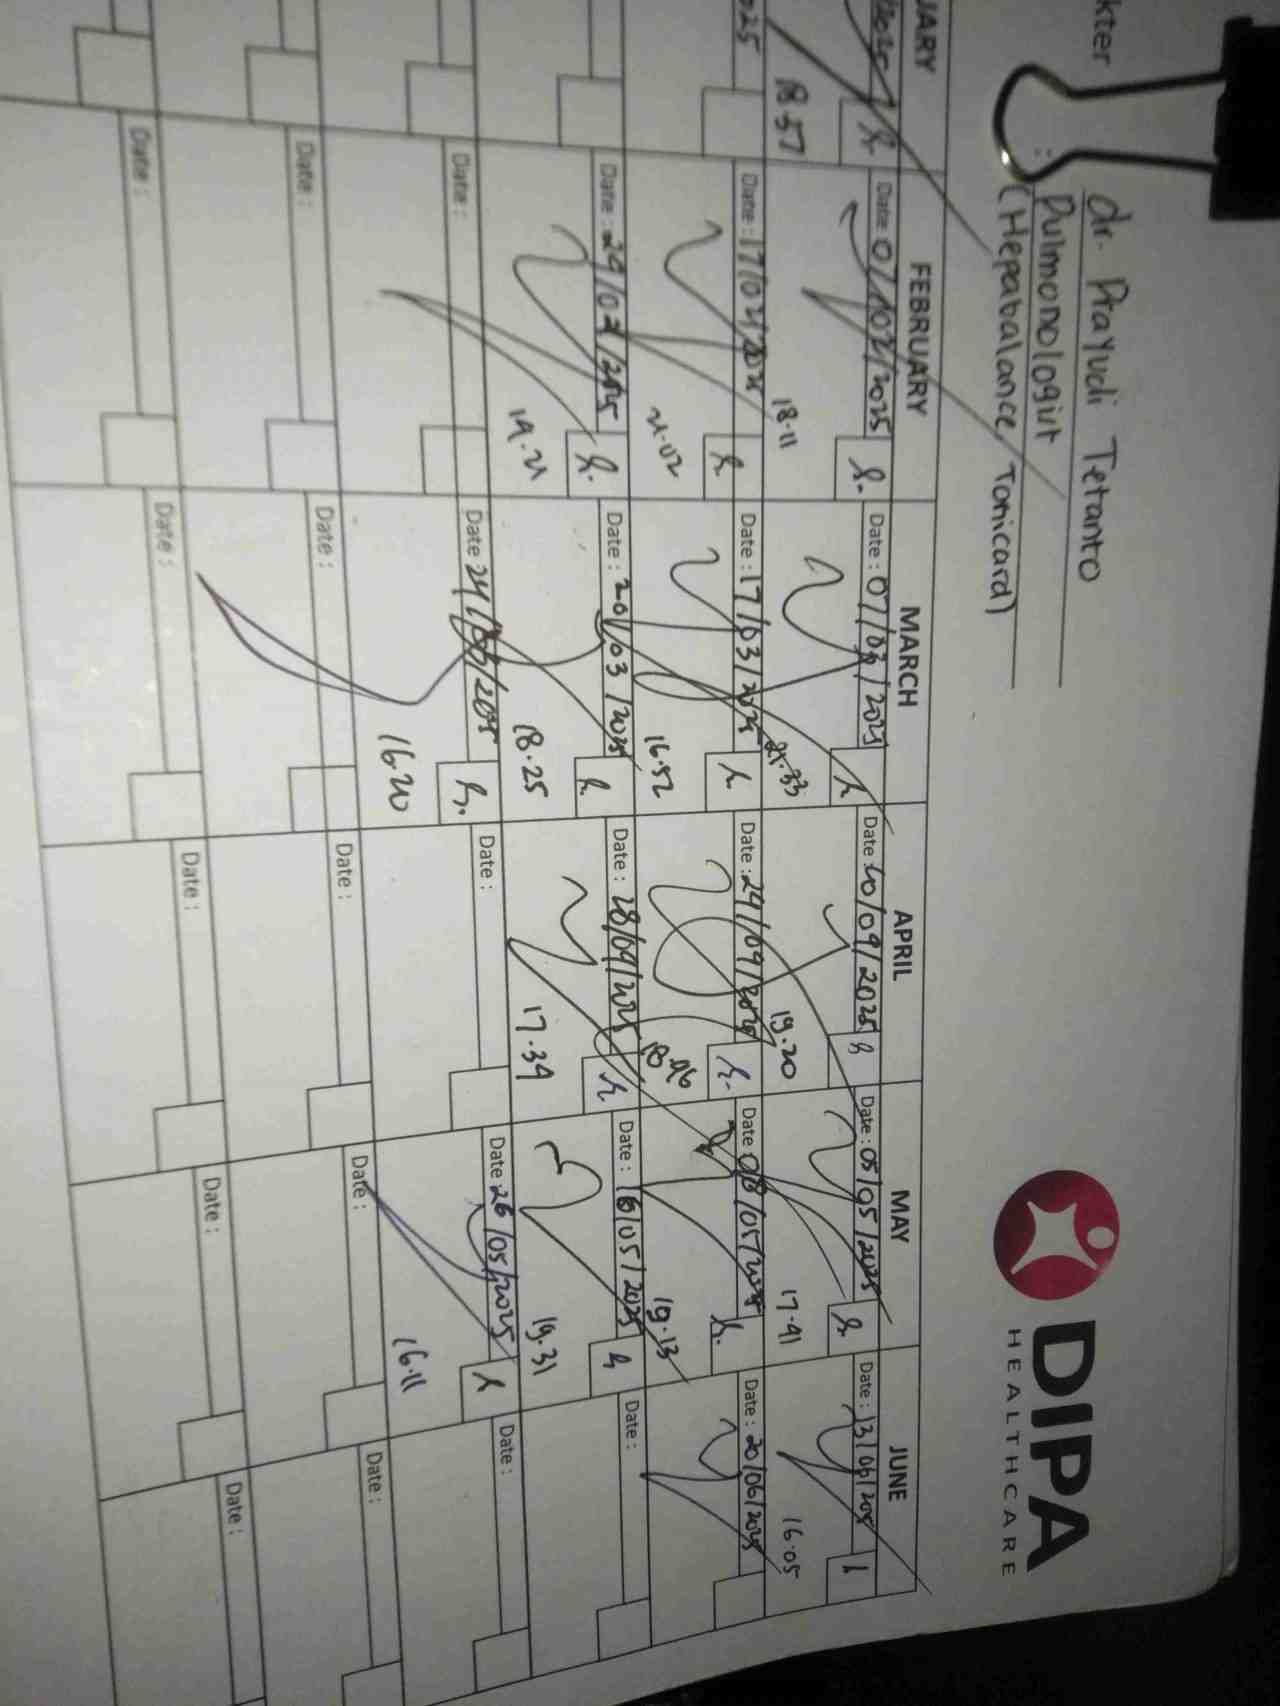 kter : dr. Prayudi Tetanto
Pulmonologist
(Hepabalance, Tonicard)
DIPA
HEALTHCARE
UARY FEBRUARY MARCH APRIL MAY JUNE
Date : 07/02/2025 Date : 07/03/2025 Date : 10/04/2025 Date : 05/05/2025 Date : 13/06/2025
18.57 18.11 21.33 19.20 17.41 16.05
025 Date : 17/02/2025 Date : 17/03/2025 Date : 24/04/2025 Date : 08/05/2025 Date : 20/06/2025
21.02 16.52 18.06 19.13
Date : 24/02/2025 Date : 20/03/2025 Date : 28/04/2025 Date : 16/05/2025 Date :
19.21 18.25 17.34 19.31
Date : Date : 24/03/2025 Date : Date : 26/05/2025 Date :
16.20 16.11
Date : Date : Date : Date : Date :
Date : Date : Date : Date : Date :